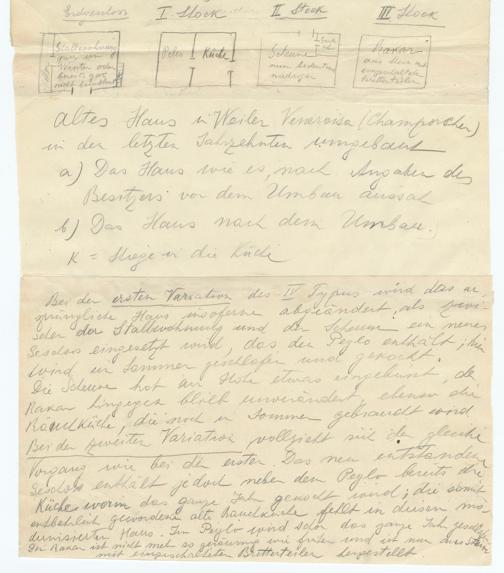 Erdgeschoss   I. Stock   II Stock   III Stock
Stallwohnung
Peles   Küche   Scheune   Rakar
aus Stein mit
eingeschalteten
Bretterteilen
altes Haus in Weiler Verdroisa (Champorcher)
in den letzten Jahrzehnten umgebaut
a) Das Haus wie es, nach Angaben des
Besitzers vor dem Umbau aussah
b) Das Haus nach dem Umbau.
K = Stiege in die Küche
Bei der ersten Variation des IV Typus wird das ur-
sprüngliche Haus insoferne abgeändert, als zwi-
schen der Stallwohnung und der Scheune ein neues
Geschoss eingesetzt wird, das den Peylo enthält; hier
wird im Sommer geschlafen und gekocht.
Die Scheune hat an Höhe etwas eingebüsst, der
Rakar hingegen blieb unverändert, ebenso die
Rauchküche, die noch im Sommer gebraucht wird
Bei der zweiten Variation vollzieht sich der gleiche
Vorgang wie bei der ersten. Das neu entstandene
Geschoss enthält jedoch neben dem Peylo bereits die
Küche worin das ganze Jahr gekocht wird; die somit
entbehrlich gewordene alte Rauchküche fällt in diesem mo-
dernisierten Haus. Im Peylo wird schon das ganze Jahr
Der Rakar ist nicht mehr so geräumig wie früher und ist nur aus Stein
mit eingeschalteten Bretterteilen hergestellt